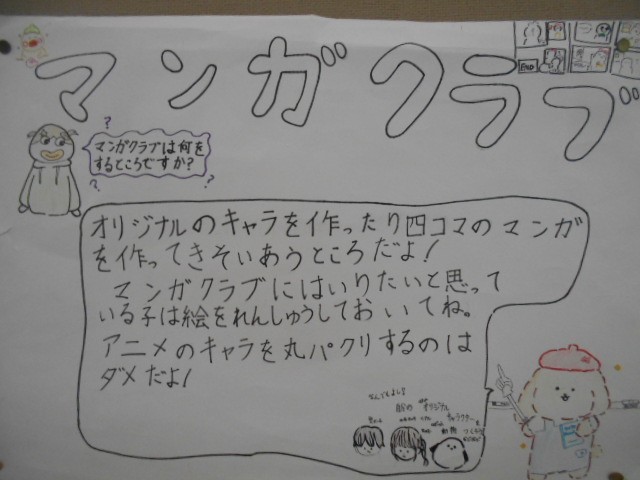 マンガクラブ
END
マンガクラブは何を
するところですか?
オリジナルのキャラを作ったり四コマのマンガ
を作ってきそいあうところだよ!
マンガクラブにはいりたいと思って
いる子は絵をれんしゅうしておいてね。
アニメのキャラを丸パクリするのは
ダメだよ!
なんでもよし!
オリジナル
キャラクター